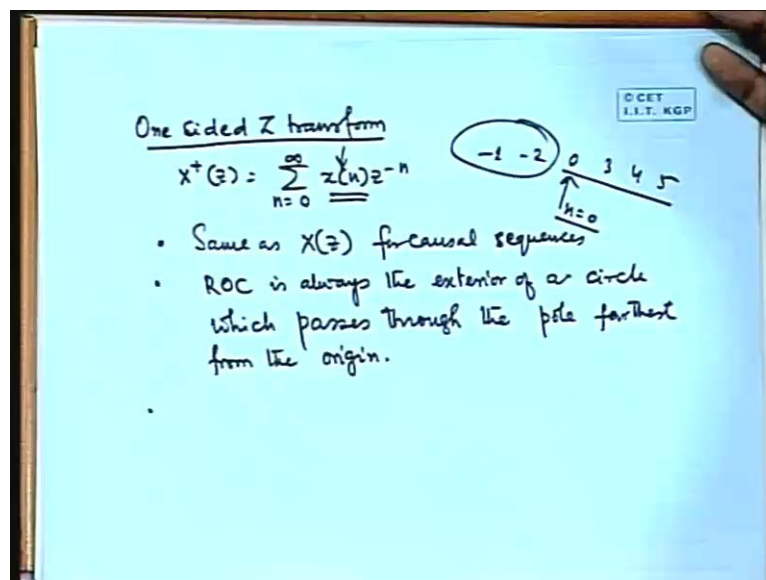 © CET
I.I.T. KGP
One sided Z transform
X⁺(z) = ∑_{n=0}^{∞} x(n) z⁻ⁿ
-1 -2 0 3 4 5
n=0
• Same as X(z) for causal sequences
• ROC is always the exterior of a circle
which passes through the pole farthest
from the origin.
•